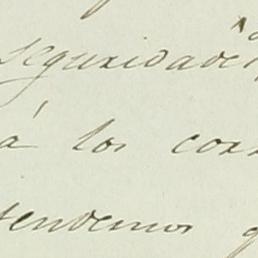 seguridade
á los cor
tendemos q